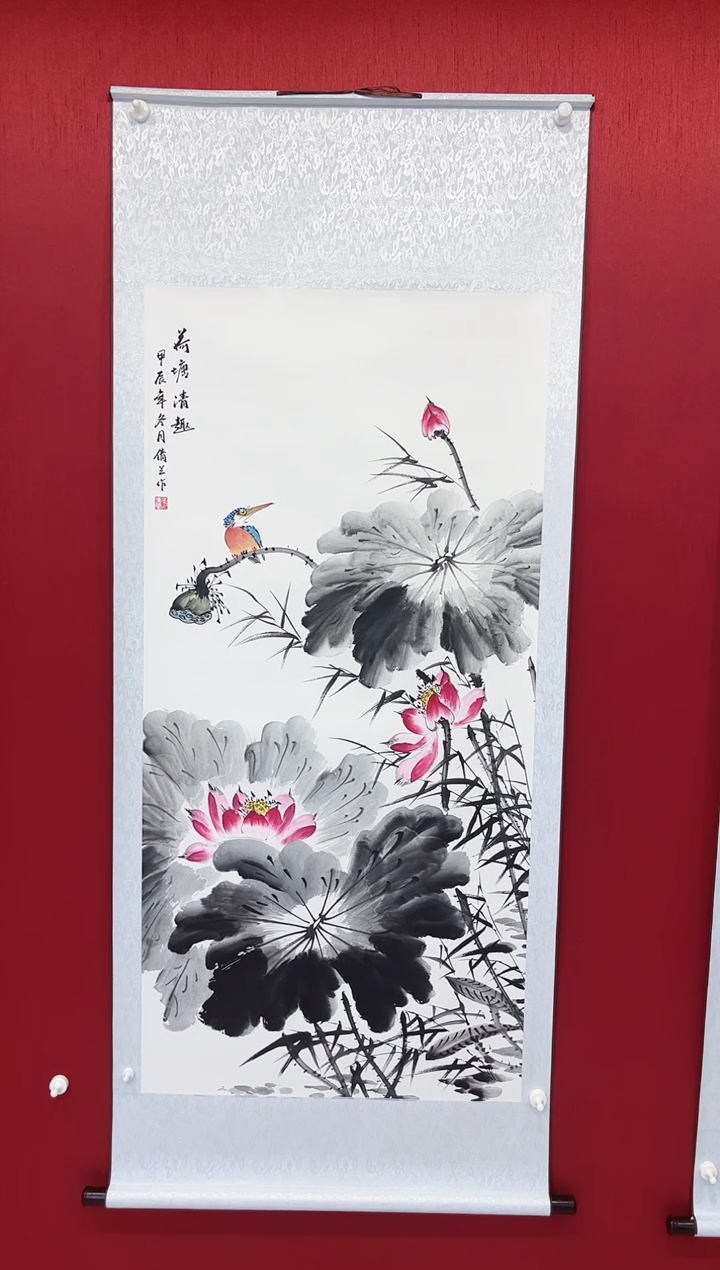 荷塘清趣
甲辰年冬月倩兰作